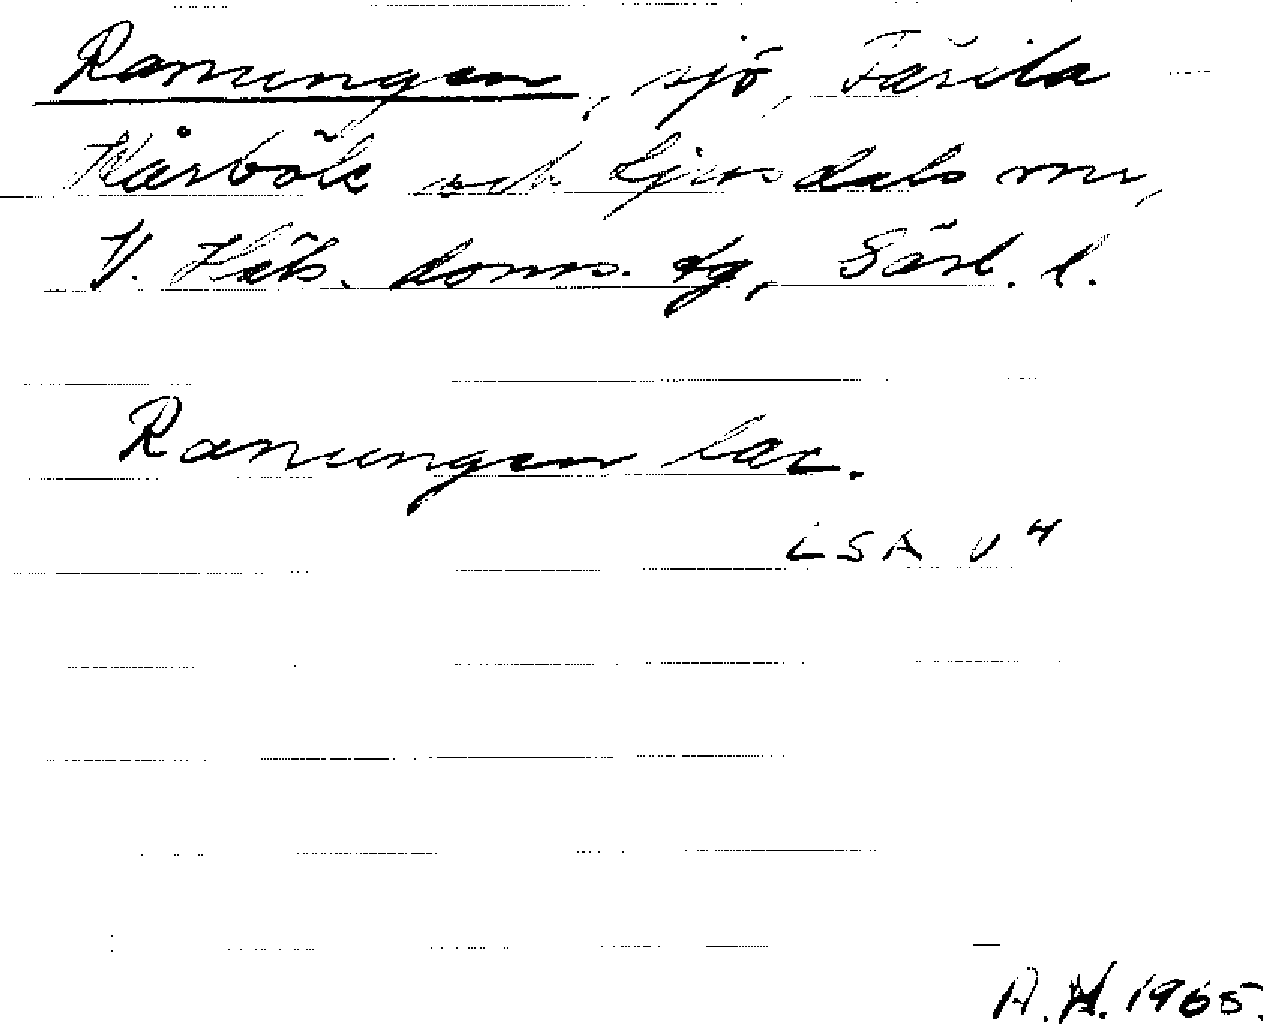 Ramungen, sjö, Färila
Kårböle och Ljusdals snr,
V. Häls. doms. tg, Gävl. l.
Ramungen lac.
LSA U 4
A. H. 1965.